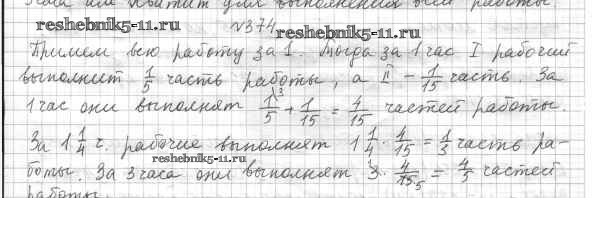 хватит для выполнения всей работы
reshebnik5-11.ru №374 reshebnik5-11.ru
Примем всю работу за 1. Тогда за 1 час I рабочий
выполнит 1/5 часть работы, а II – 1/15 часть. За
1 час они выполнят 1/5 + 1/15 = 4/15 частей работы.
За 1 1/4 ч. рабочие выполнят 1 1/4 · 4/15 = 1/3 часть ра-
reshebnik5-11.ru
боты. За 3 часа они выполнят 3 · 4/15 = 4/5 частей
работы.